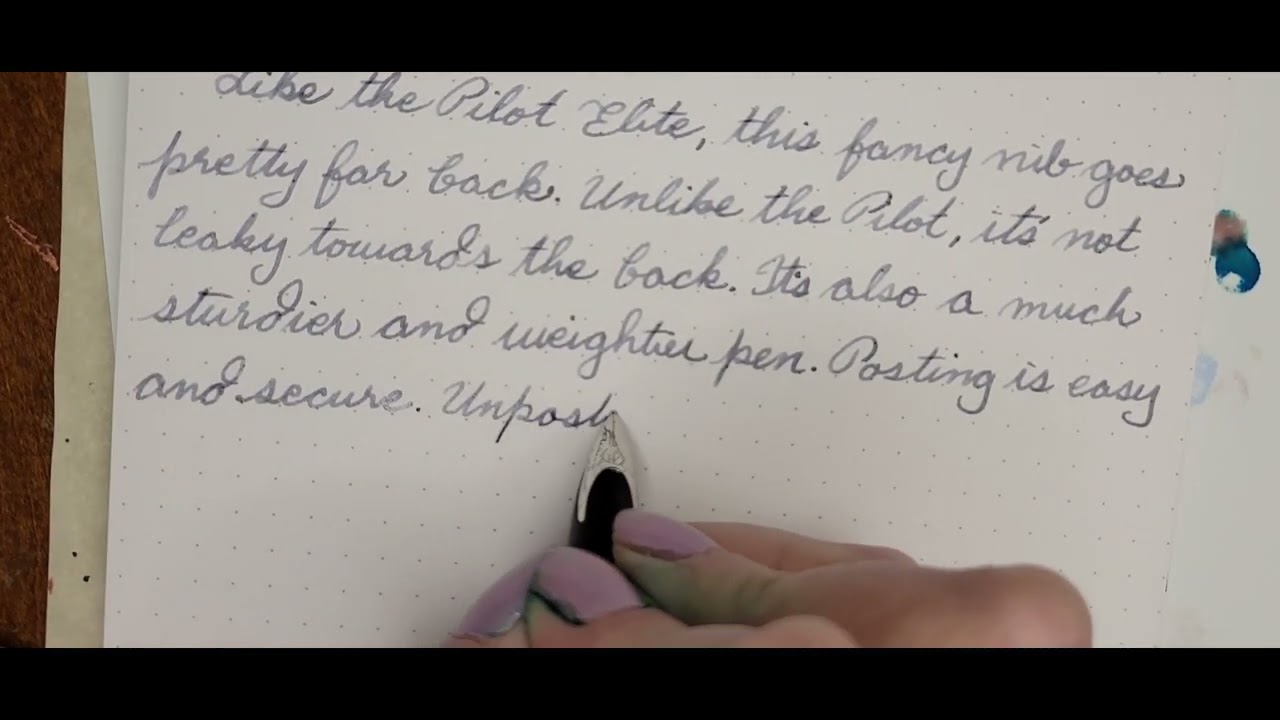 Like the Pilot Elite, this fancy nib goes
pretty far back. Unlike the Pilot, it's not
leaky towards the back. It's also a much
sturdier and weightier pen. Posting is easy
and secure. Unpost